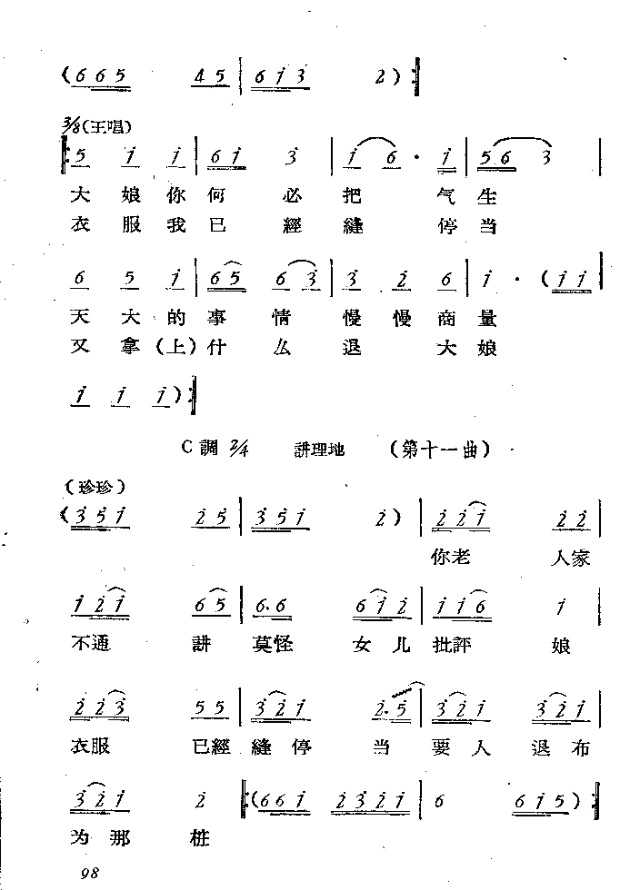 (6 6 5 4 5 | 6 i 3 2 ) :|
3/8 (王唱)
|: 5 i i | 6 i 3 | i 6 · i | 5 6 3 |
大 娘 你 何 必 把 气 生
衣 服 我 已 經 縫 停 当
6 5 i | 6 5 6 3 | 3 2 6 | i · ( i i |
天 大 的 事 情 慢 慢 商 量
又 拿 (上) 什 么 退 大 娘
i i i ) :|
C 調 2/4 講理地 (第十一曲)
(珍珍)
( 3 5 i 2 5 | 3 5 i 2 ) | 2 2 i 2 2 |
你老 人家
i 2 i 6 5 | 6. 6 6 i 2 | i i 6 i |
不通 講 莫怪 女 儿 批評 娘
2 2 3 5 5 | 3 2 i 2. 5 | 3 2 i 3 2 i |
衣服 已經 縫 停 当 要 人 退 布
3 2 i 2 |: (6 6 i 2 3 2 i | 6 6 i 5 ) :|
为 那 桩
98